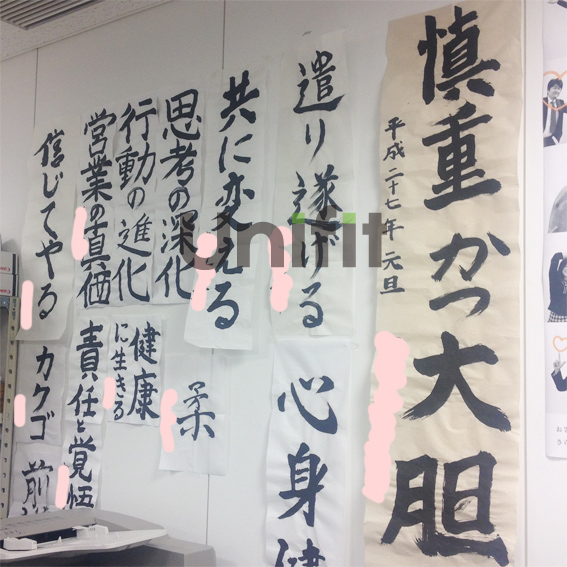 慎重かつ大胆
平成二十七年元旦
遣り遂げる
共に変える
思考の深化
行動の進化
営業の真価
信じてやる
心身健
柔
健康
に生きる
責任と覚悟
カクゴ
前
Unifit